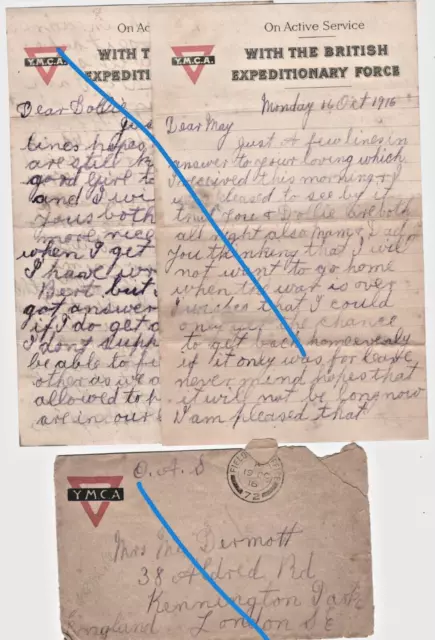 On Active Service
WITH THE
EXPEDITIONARY
Y.M.C.A.
Dear Dollie
Just
lines hopes
are still
good Girl to
and I wi
yous both
more nice
when I get
I have wro
Bert. but
got answer
if I do get
I dont sup
be able to
other as we a
allowed to
are in our
On Active Service
Y.M.C.A.
WITH THE BRITISH
EXPEDITIONARY FORCE
Monday 16 Oct 1916
Dear May
Just A few lines in
answer to your loving which
I received this morning &
pleased to see by it
that You & Dollie are both
all right also Mama & Dad
You thinking that I will
not want to go home
when the war is over
I wishes that I could
only get the chance
to get back home
if it only was for leave
never mind hopes that
it will not be long now
I am pleased that
YMCA
O. A. S
FIELD POST OFFICE
16
72
Mrs Mc Dermott
38 Aldred Rd
Kennington Park
London S E
England